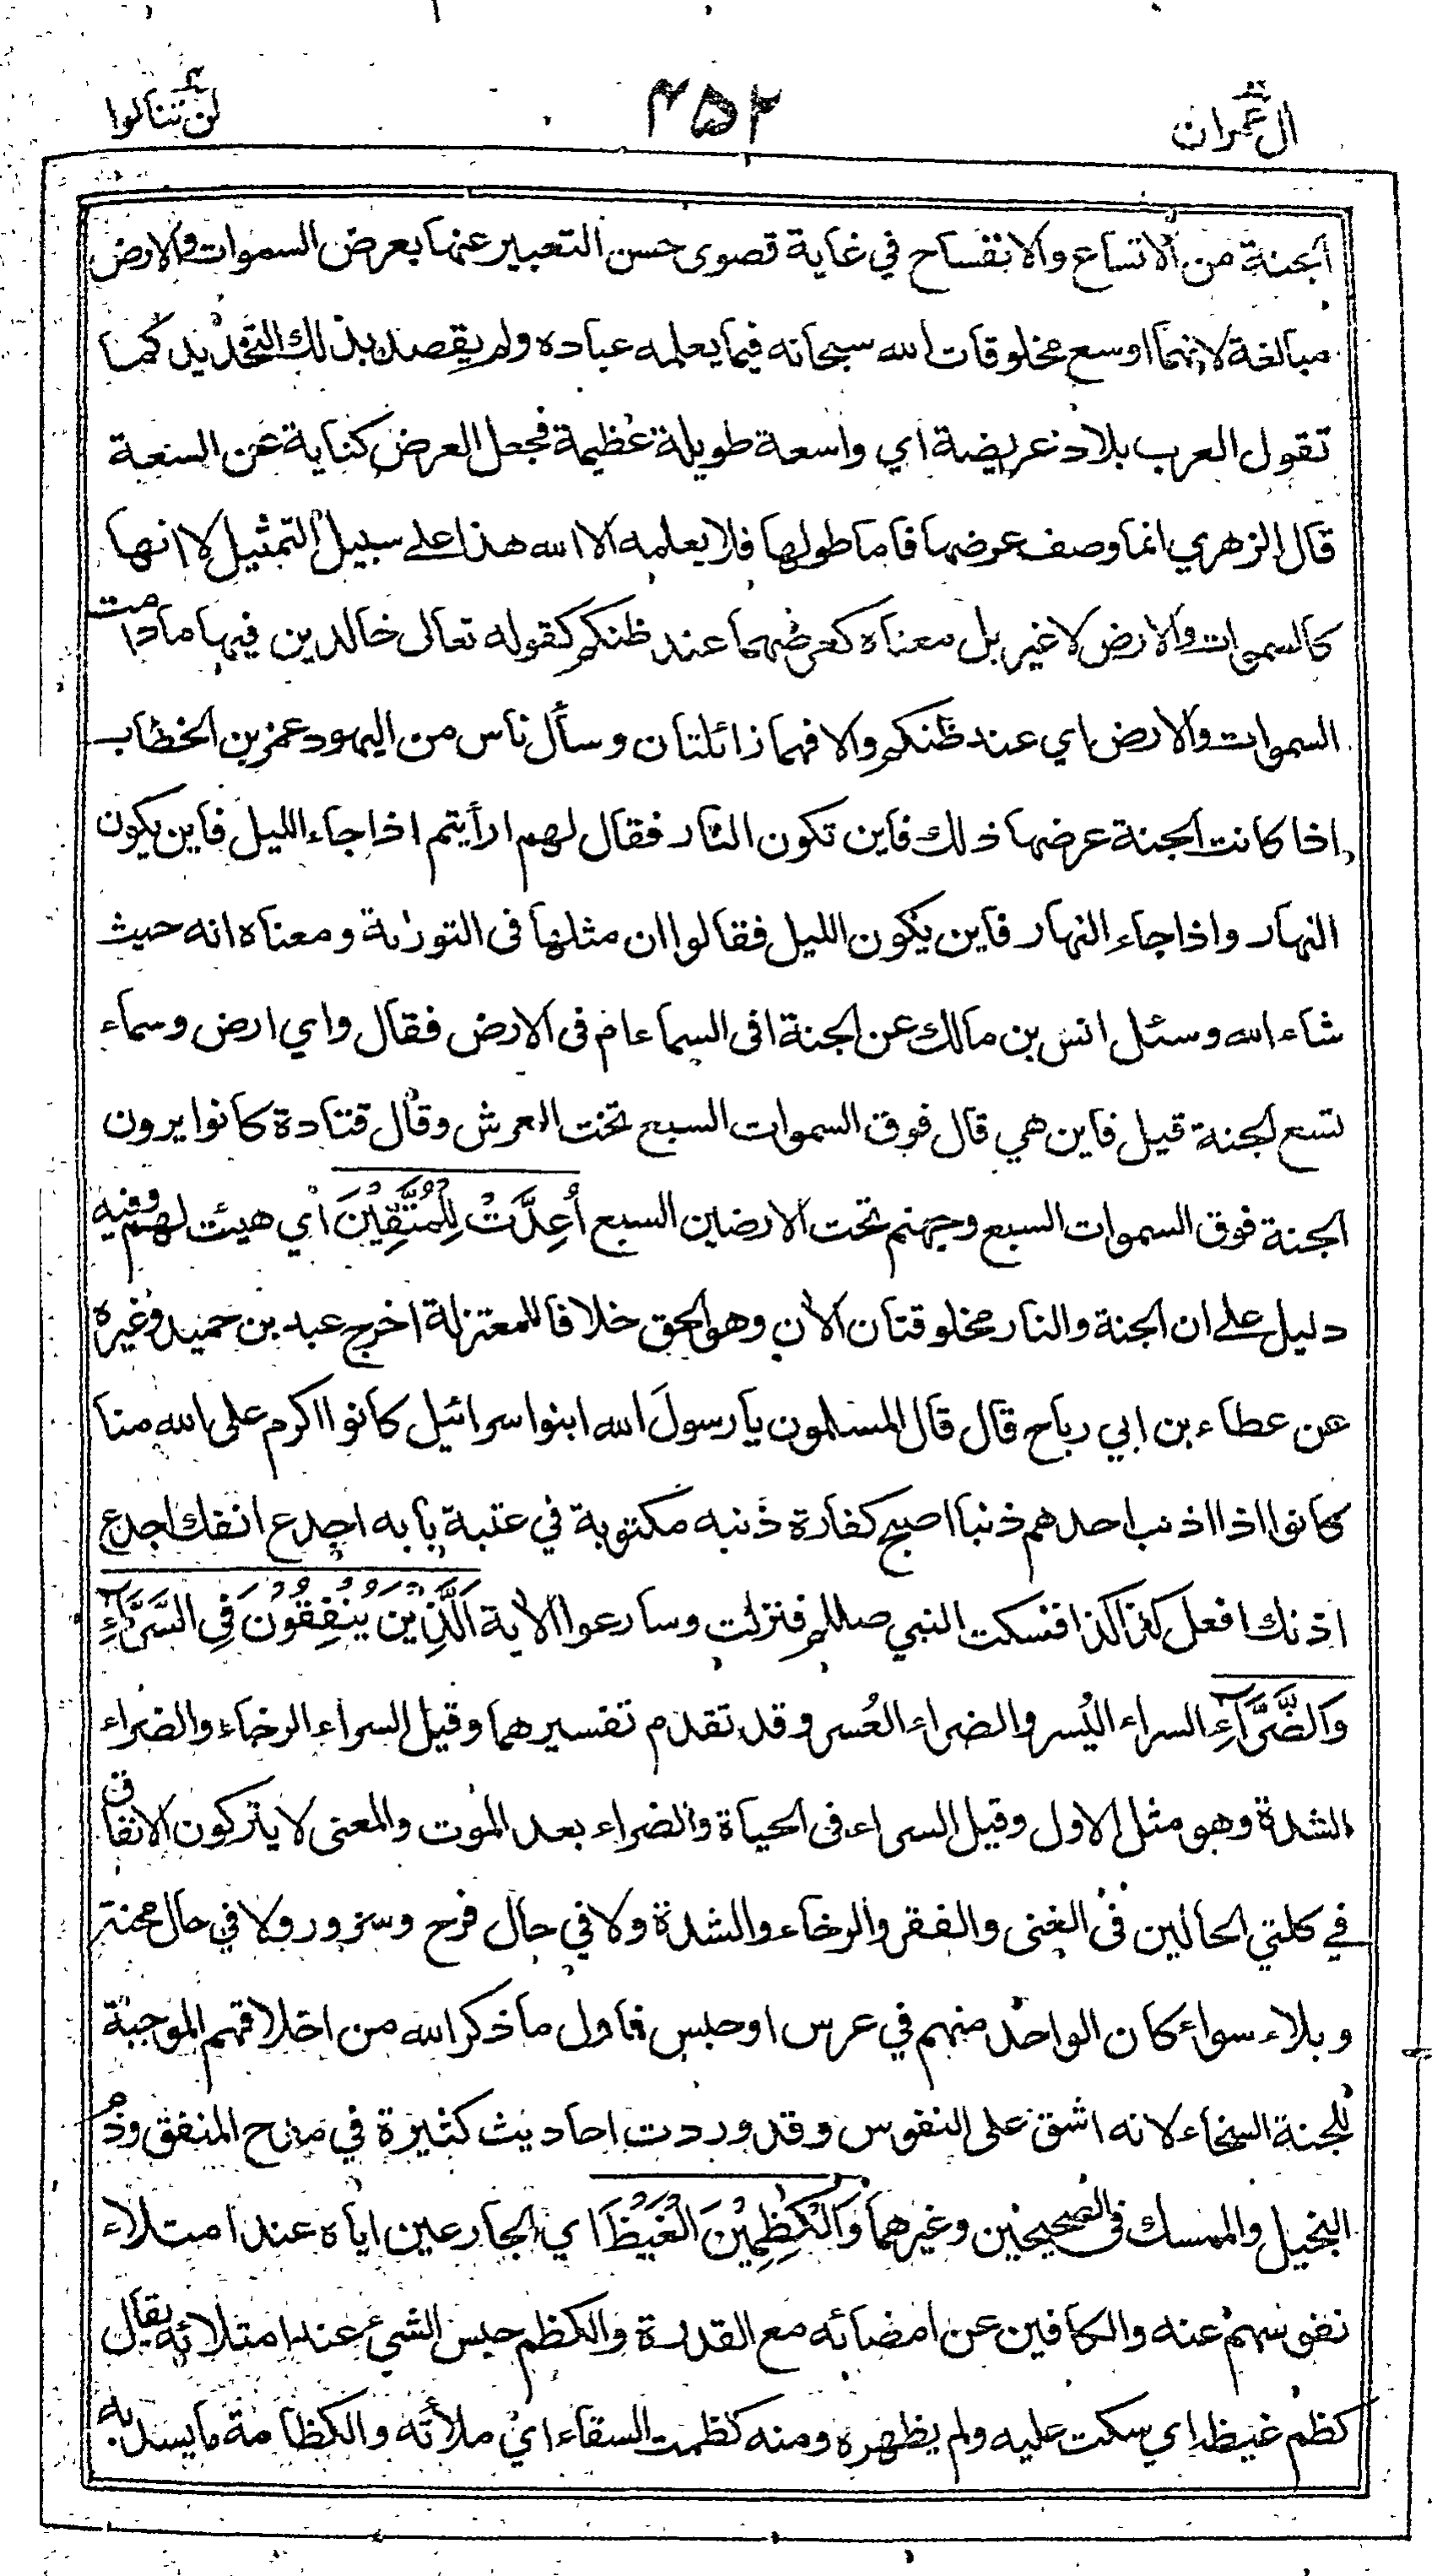 اٰل عمران
۴۵۲
لن تنالوا
الجنة من الاتساع والانفساح في غاية قصوى حسن التعبير عنها بعرض السموات والارض
مبالغة لانهما اوسع مخلوقات الله سبحانه فيما يعلمه عباده ولم يقصد بذلك التحديد كما
تقول العرب بلاد عريضة اي واسعة طويلة عظيمة فجعل العرض كناية عن السعة
قال الزهري انما وصف عرضها فاما طولها فلا يعلمه الا الله هذا على سبيل التمثيل لا انها
كالسموات والارض لا غير بل معناه كعرضهما عند ظنكم كقوله تعالى خالدين فيها مادامت
السموات والارض اي عند ظنكم والا فهما زائلتان وسأل ناس من اليهود عمر بن الخطاب
اذا كانت الجنة عرضها ذلك فاين تكون النار فقال لهم ارأيتم اذا جاء الليل فاين يكون
النهار واذا جاء النهار فاين يكون الليل فقالوا ان مثلها فى التورٰىة ومعناه انه حيث
شاء الله وسئل انس بن مالك عن الجنة افى السماء ام فى الارض فقال واي ارض وسماء
تسع الجنة قيل فاين هي قال فوق السموات السبع تحت العرش وقال قتادة كانوا يرون
الجنة فوق السموات السبع وجهنم تحت الارضين السبع أُعِدَّتْ لِلْمُتَّقِيْنَ اي هيئت لهم وفيه
دليل على ان الجنة والنار مخلوقتان الأن وهو الحق خلافا للمعتزلة اخرج عبد بن حميد وغيره
عن عطاء بن ابي رباح قال قال المسلمون يا رسولَ الله ابنوا سرائيل كانوا اكرم على الله منا
كانوا اذا اذنب احدهم ذنبا اصبح كفارة ذنبه مكتوبة في عتبة بابه اجدع انفك اجدع
اذنك افعل كذا كذا فسكت النبي صللم فنزلت وسارعوا الاية الَّذِيْنَ يُنْفِقُوْنَ فِى السَّرَّآءِ
وَالضَّرَّآءِ السراء اليُسر والضراء العُسر وقد تقدم تفسيرهما وقيل السراء الرخاء والضراء
الشدة وهو مثل الاول وقيل السراء فى الحياة والضراء بعد الموت والمعنى لا يتركون الانفاق
في كلتي الحالين فى الغنى والفقر والرخاء والشدة ولا في حال فرح وسرور ولا في حال محنة
وبلاء سواء كان الواحد منهم في عرس او حبس فاول ما ذكر الله من اخلاقهم الموجبة
للجنة السخاء لانه اشق على النفوس وقد وردت احاديث كثيرة في مدح المنفق وذم
البخيل والممسك فى الصحيحين وغيرهما وَالْكٰظِمِيْنَ الْغَيْظَ اي الجارعين اياه عند امتلاء
نفوسهم عنه والكافين عن امضائه مع القدرة والكظم حبس الشيء عند امتلائه يقال
كظم غيظه اي سكت عليه ولم يظهره ومنه كظمت السقاء اي ملأته والكظامة ما يسد به